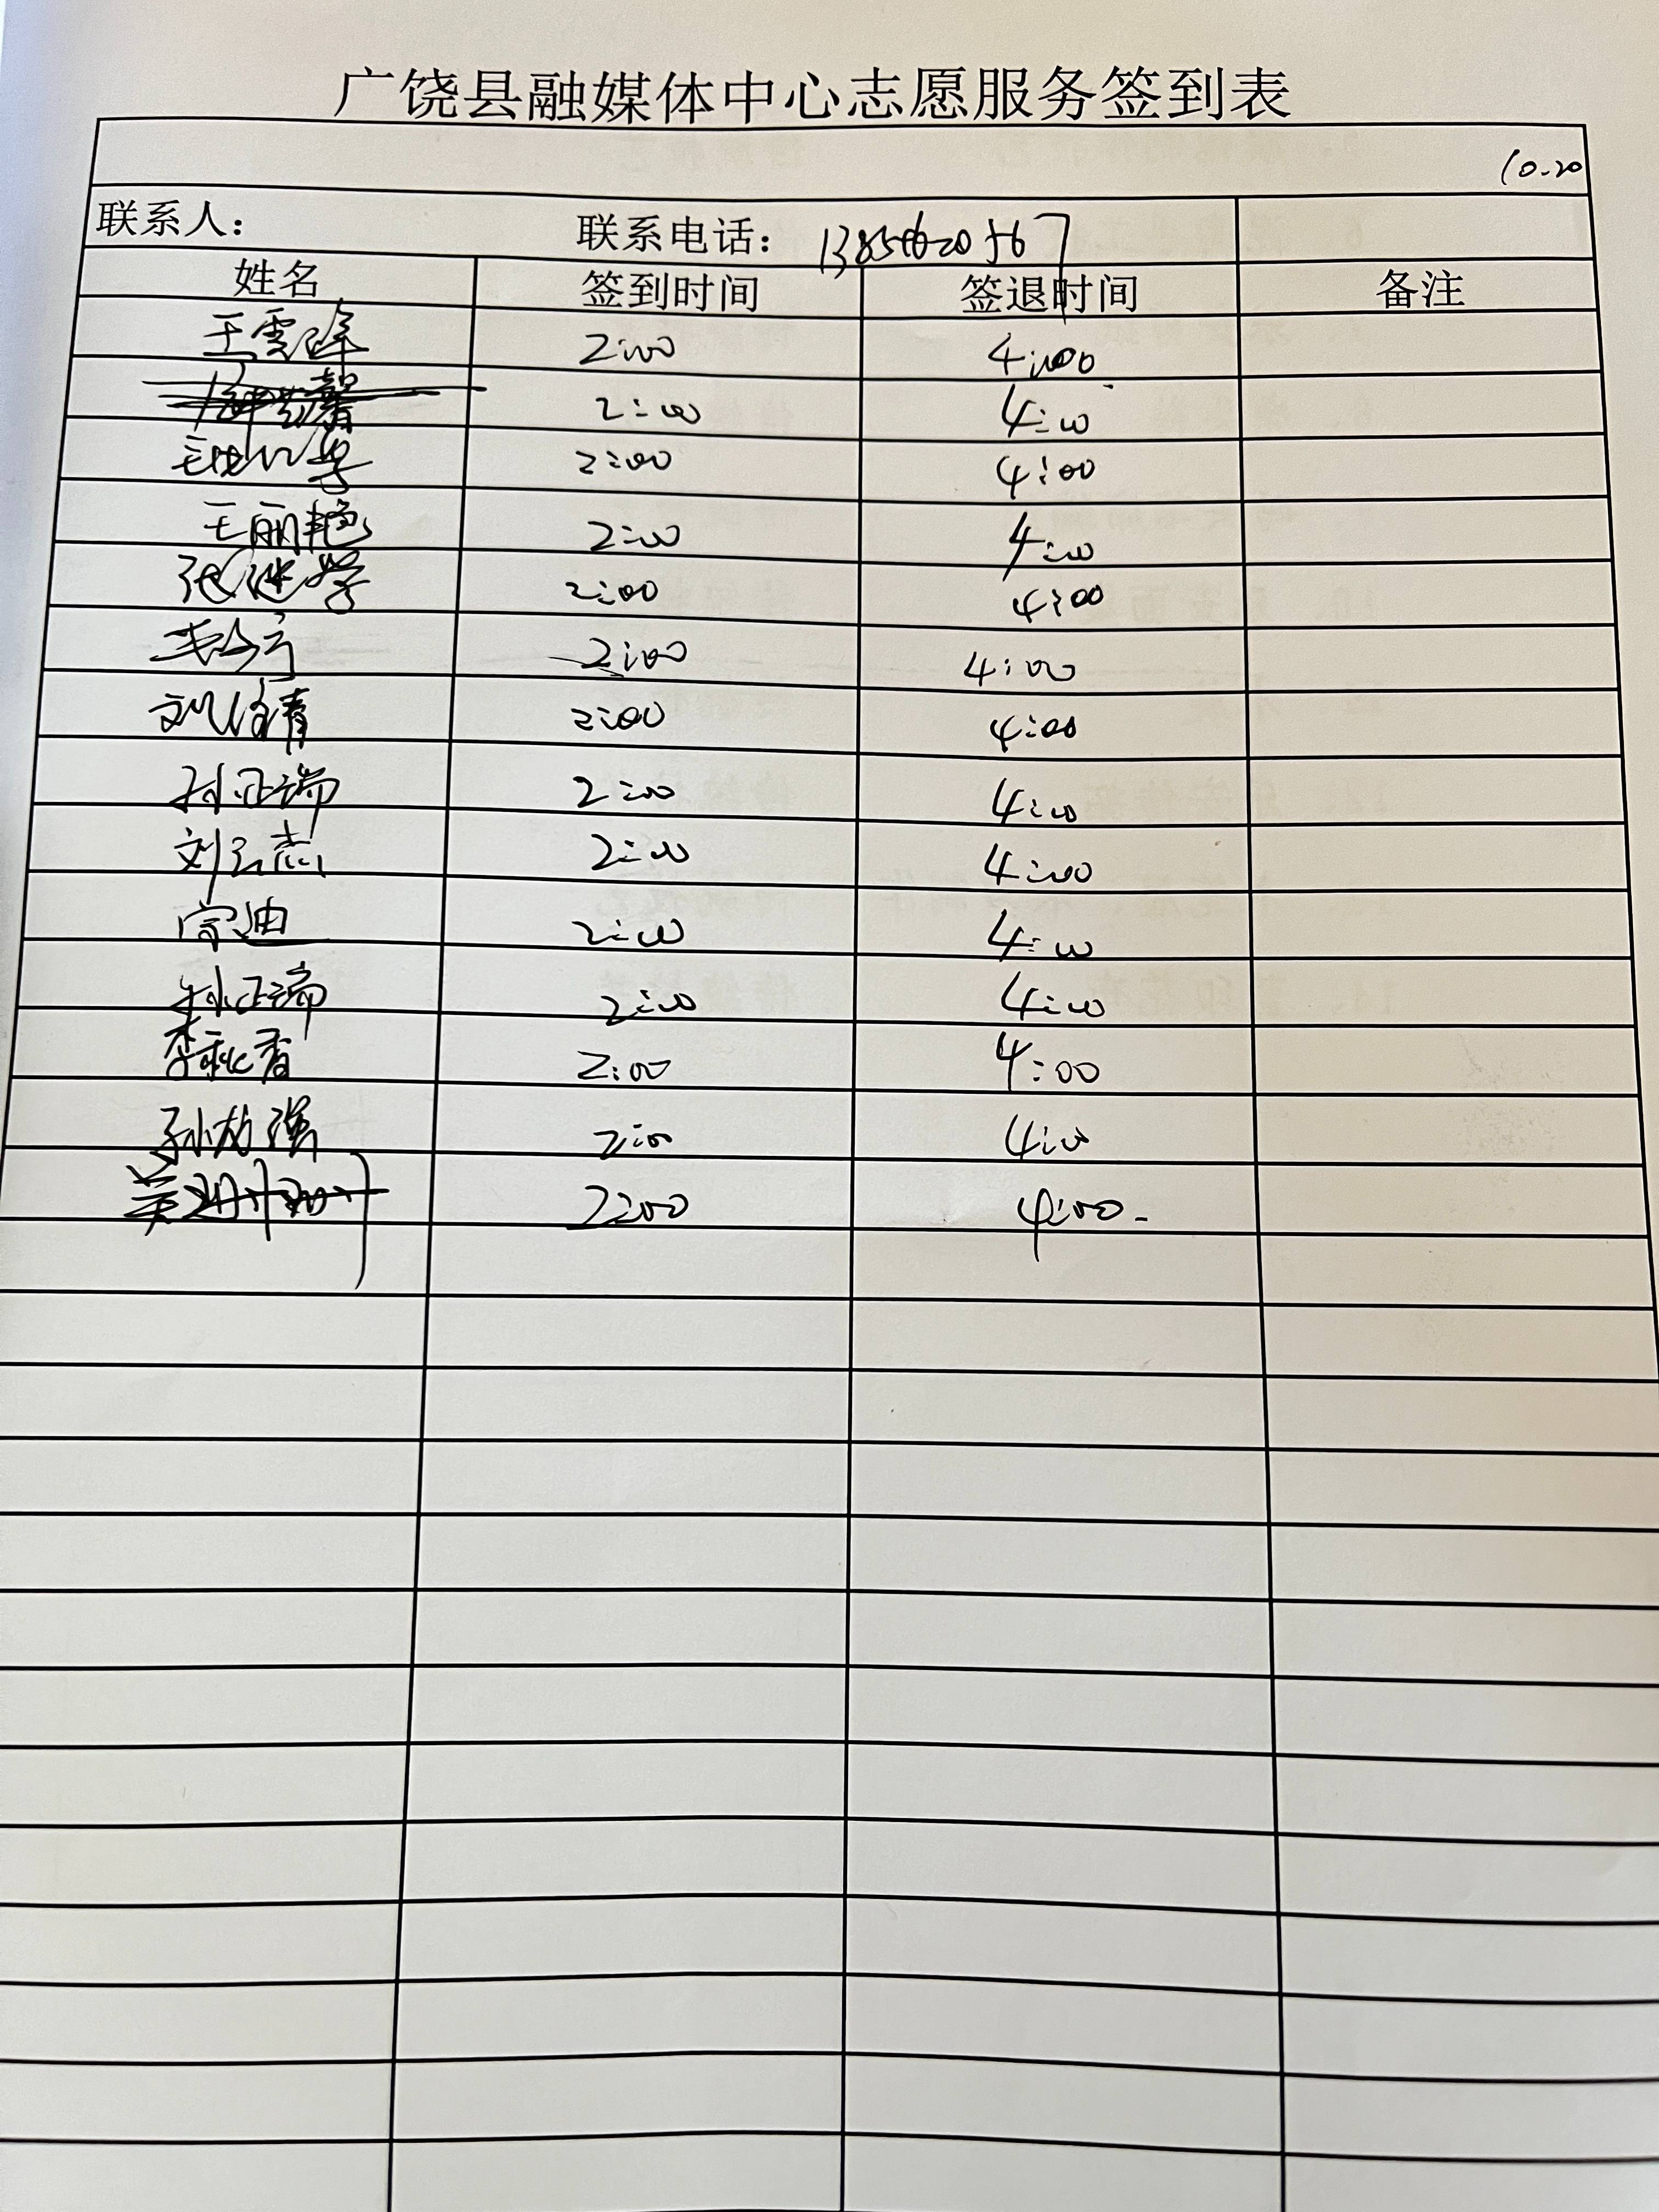 广饶县融媒体中心志愿服务签到表
10.20
联系人： 联系电话：
姓名 签到时间 签退时间 备注
王雪 2:00 4:00
馨 2:00 4:00
2:00 4:00
王丽艳 2:00 4:00
张继学 2:00 4:00
2:00 4:00
刘 清 2:00 4:00
孙正端 2:00 4:00
刘云志 2:00 4:00
宗迪 2:00 4:00
孙正端 2:00 4:00
李秋香 2:00 4:00
孙 强 2:00 4:00
2:00 4:00